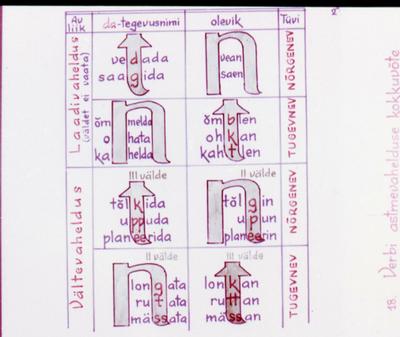 Av
liik
da-tegevusnimi
olevik
Tüvi
Laadivaheldus
(väldet ei vaata)
vedada
saagida
n
vean
saen
NÕRGENEV
n
õmmelda
ohata
kahelda
õmblen
ohkan
kahtlen
TUGEVNEV
Vältevaheldus
III välde
tõlkida
uppuda
planeerida
II välde
n
tõlgin
upun
planeerin
NÕRGENEV
II välde
n
longata
rutata
mässata
III välde
lonkan
ruttan
mässan
TUGEVNEV
18. Verbi astmevahelduse kokkuvõte